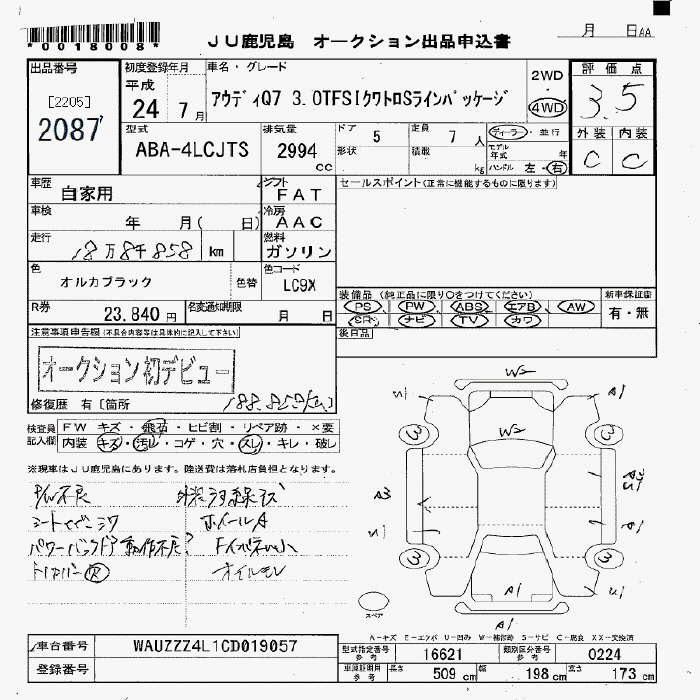 *0018008*
JU鹿児島 オークション出品申込書
月 日AA
出品番号 初度登録年月 車名・グレード 2WD 評価点
[2205] 平成 アウディQ7 3.0TFSIクワトロSラインパッケージ 4WD 3.5
2087 24 7月 外装 内装
型式 排気量 ドア 5 定員 7人 ディーラー・並行
ABA-4LCJTS 2994cc 形状 積載 kg モデル年式 年 C C
ハンドル 左・右
車歴 自家用 シフト FAT セールスポイント(正常に機能するものに限ります)
車検 年 月( 日) 冷房 AAC
走行 18万8千858 km 燃料 ガソリン
色 オルカブラック 色替 色コード LC9X
装備品(純正品に限り○をつけてください) 新車保証書
R券 23,840円 名変通知期限 月 日 PS PW ABS エアB AW 有・無
SR ナビ TV カワ
注意事項申告欄(不具合内容等は具体的に記入して下さい) 後日品
オークション初デビュー
修復歴 有[箇所 188,858km
検査員 FW キズ・飛石・ヒビ割・リペア跡・×要
記入欄 内装 キズ・汚レ・コゲ・穴・スレ・キレ・破レ
※現車はJU鹿児島にあります。陸送費は落札店負担となります。
シワ
パワーバックドア動作不良? 
ホイールA
オイルモレ
W2
U1 A1
W2
3 3
A3 A2
U1
U1 A1
3 3
A1 U1
スペア A1
A-キズ E-エクボ U-凹み W-補修跡 S-サビ C-腐食 XX-交換済
車台番号 WAUZZZ4L1CD019057 型式指定番号 参考 16621 類別区分番号 参考 0224
登録番号 車庫証明用 参考 長さ 509cm 幅 198cm 高さ 173cm